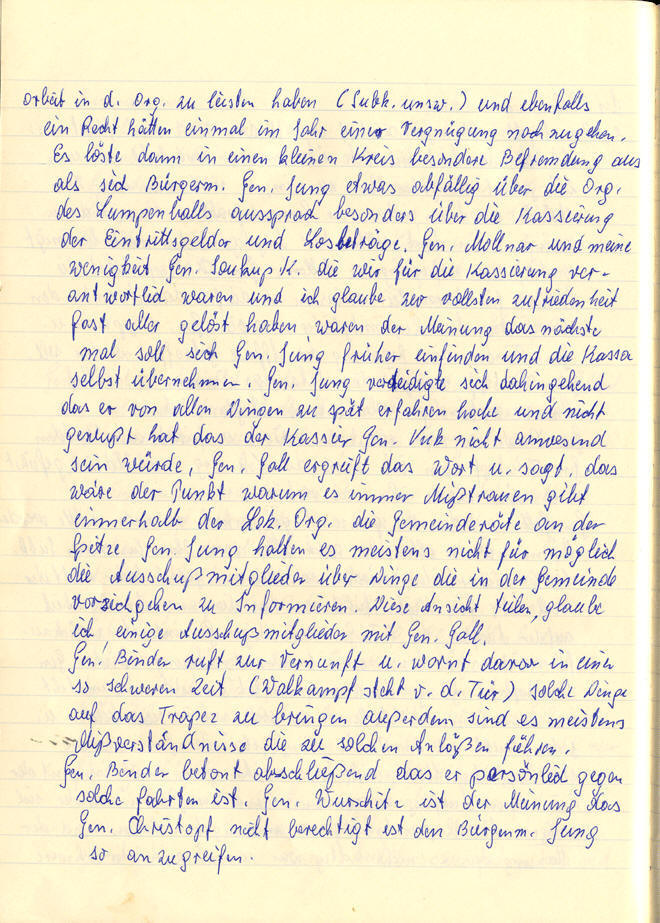 arbeit in d. Org. zu leisten haben (Subk. unsw.) und ebenfalls
ein Recht hätten einmal im Jahr einer Vergnügung nachzugehen.
Es löste dann in einen kleinen Kreis besondere Befremdung aus
als sich Bürgerm. Gen. Jung etwas abfällig über die Org.
des Lumpenballs aussprach besonders über die Kassierung
der Eintrittsgelder und Losbeträge. Gen. Mollnar und meine
wenigkeit Gen. Soukup K. die wir für die Kassierung ver-
antwortlich waren und ich glaube zer vollsten zufriedenheit
fast aller gelöst haben waren der Meinung das nächste
mal soll sich Gen. Jung früher einfinden und die Kassa
selbst übernehmen. Gen. Jung verteidigte sich dahingehend
das er von allen Dingen zu spät erfahren habe und nicht
gewußt hat das der Kassier Gen. Vuk nicht anwesend
sein würde, Gen. Gall ergreift das Wort u. sagt, das
wäre der Punkt warum es immer Mißtrauen gibt
einnerhalb der Lok. Org. die Gemeinderäte an der
Spitze Gen. Jung halten es meistens nicht für möglich
die Ausschußmitglieder über Dinge die in der Gemeinde
vorsichgehen zu Informieren. Diese Ansicht teilen, glaube
ich einige Ausschußmitglieder mit Gen. Gall.
Gen! Binder ruft zur Vernunft u. warnt davor in einer
so schweren Zeit (Walkampf steht v. d. Tür) solche Dinge
auf das Trapez zu bringen außerdem sind es meistens
Mißverständnisse die zu solchen Anlößen führen.
Gen. Binder betont abschließend das er persönlich gegen
solche fahrten ist. Gen. Wurschitz ist der Meinung das
Gen. Christopf nicht berechtigt ist den Bürgerm. Jung
so anzugreifen.